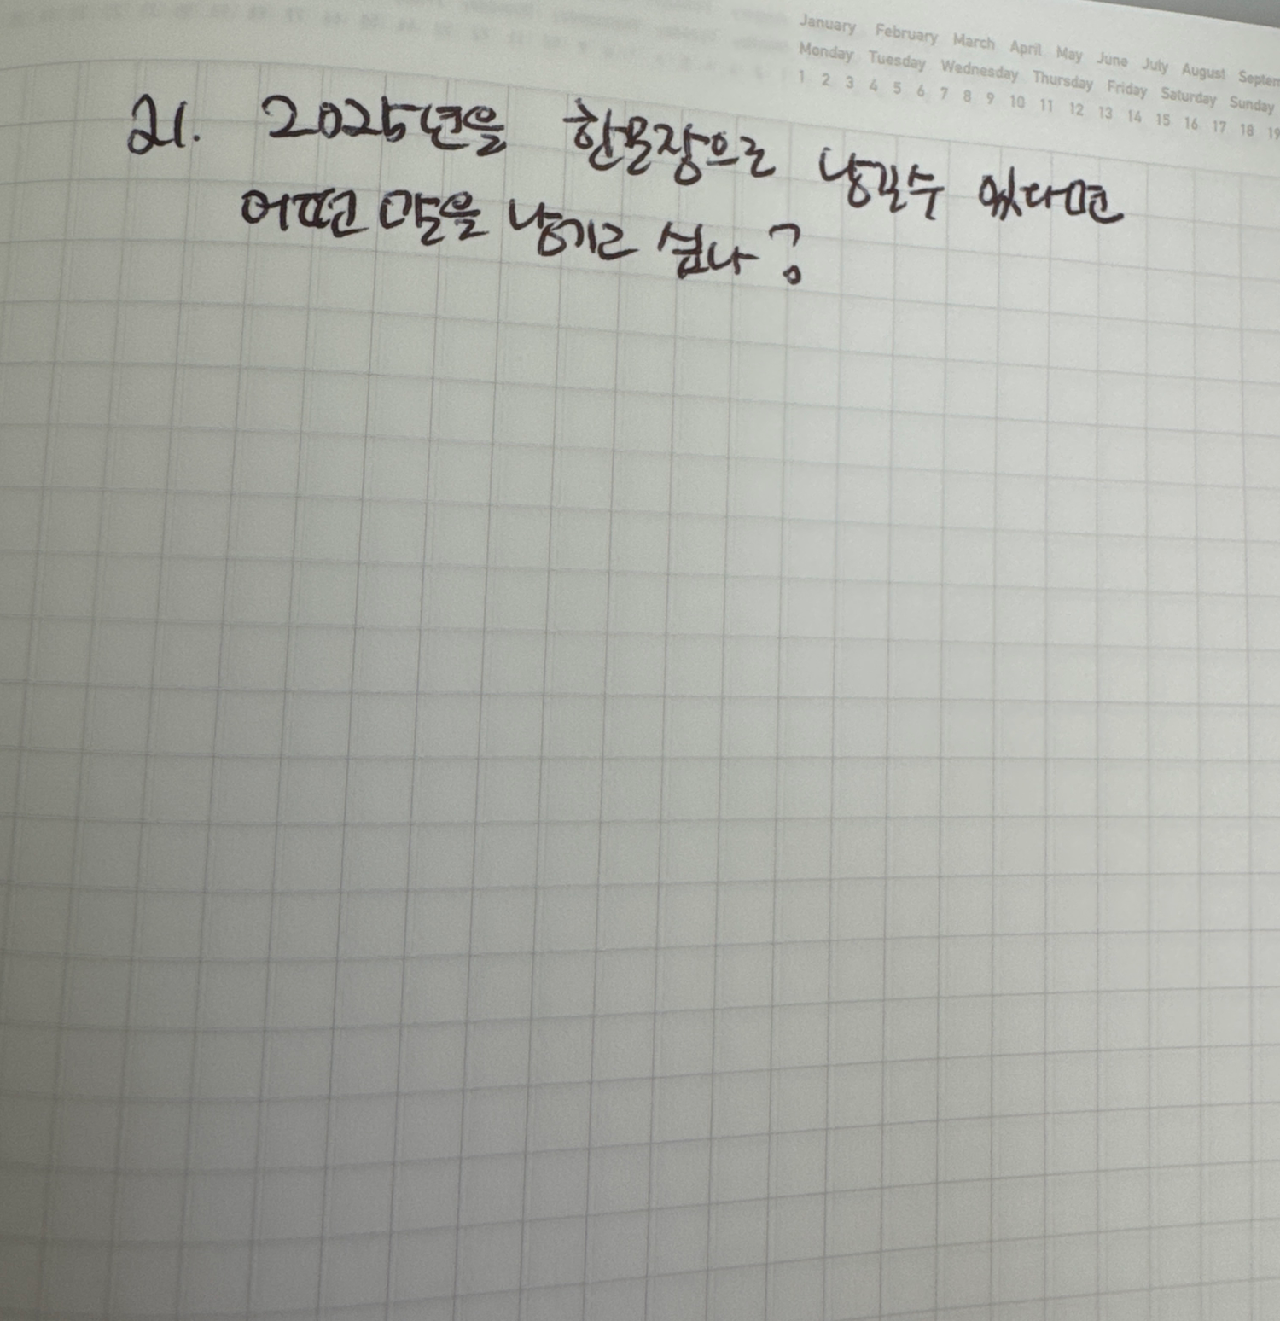 January February March April May June July August Septem
Monday Tuesday Wednesday Thursday Friday Saturday Sunday
1 2 3 4 5 6 7 8 9 10 11 12 13 14 15 16 17 18 19
21. 2025년을 한문장으로 남길수 있다면
어떤 말을 남기고 싶나?